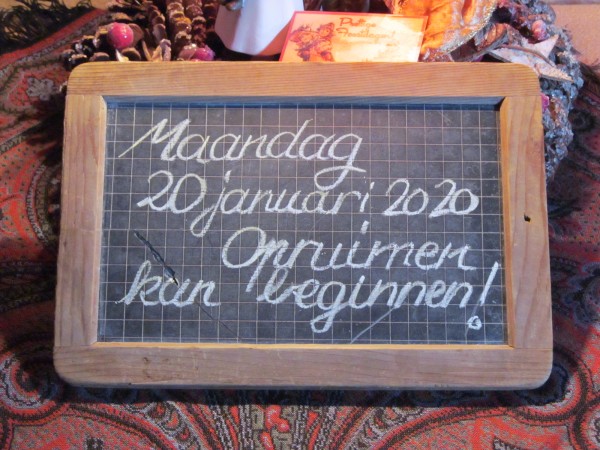 Maandag
20 januari 2020
Opruimen
kan beginnen!